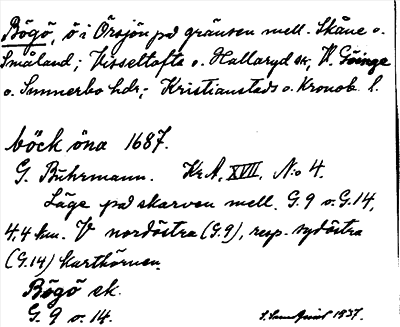 Bögö, ö i Örsjön på gränsen mell. Skåne o.
Småland; Visseltofta o. Hallaryd sk, V. Göinge
o. Sunnerbo hdr; Kristianstads o. Kronob. l.
böck öna 1687.
G. Buhrmann. Kr A, XVII, N:o 4.
Läge på skarven mell. G.9 o. G.14,
4,4 km. V nordöstra (G.9), resp. sydöstra
(G.14) karthörnen.
Bögö ek.
G. 9 o. 14.
1937.